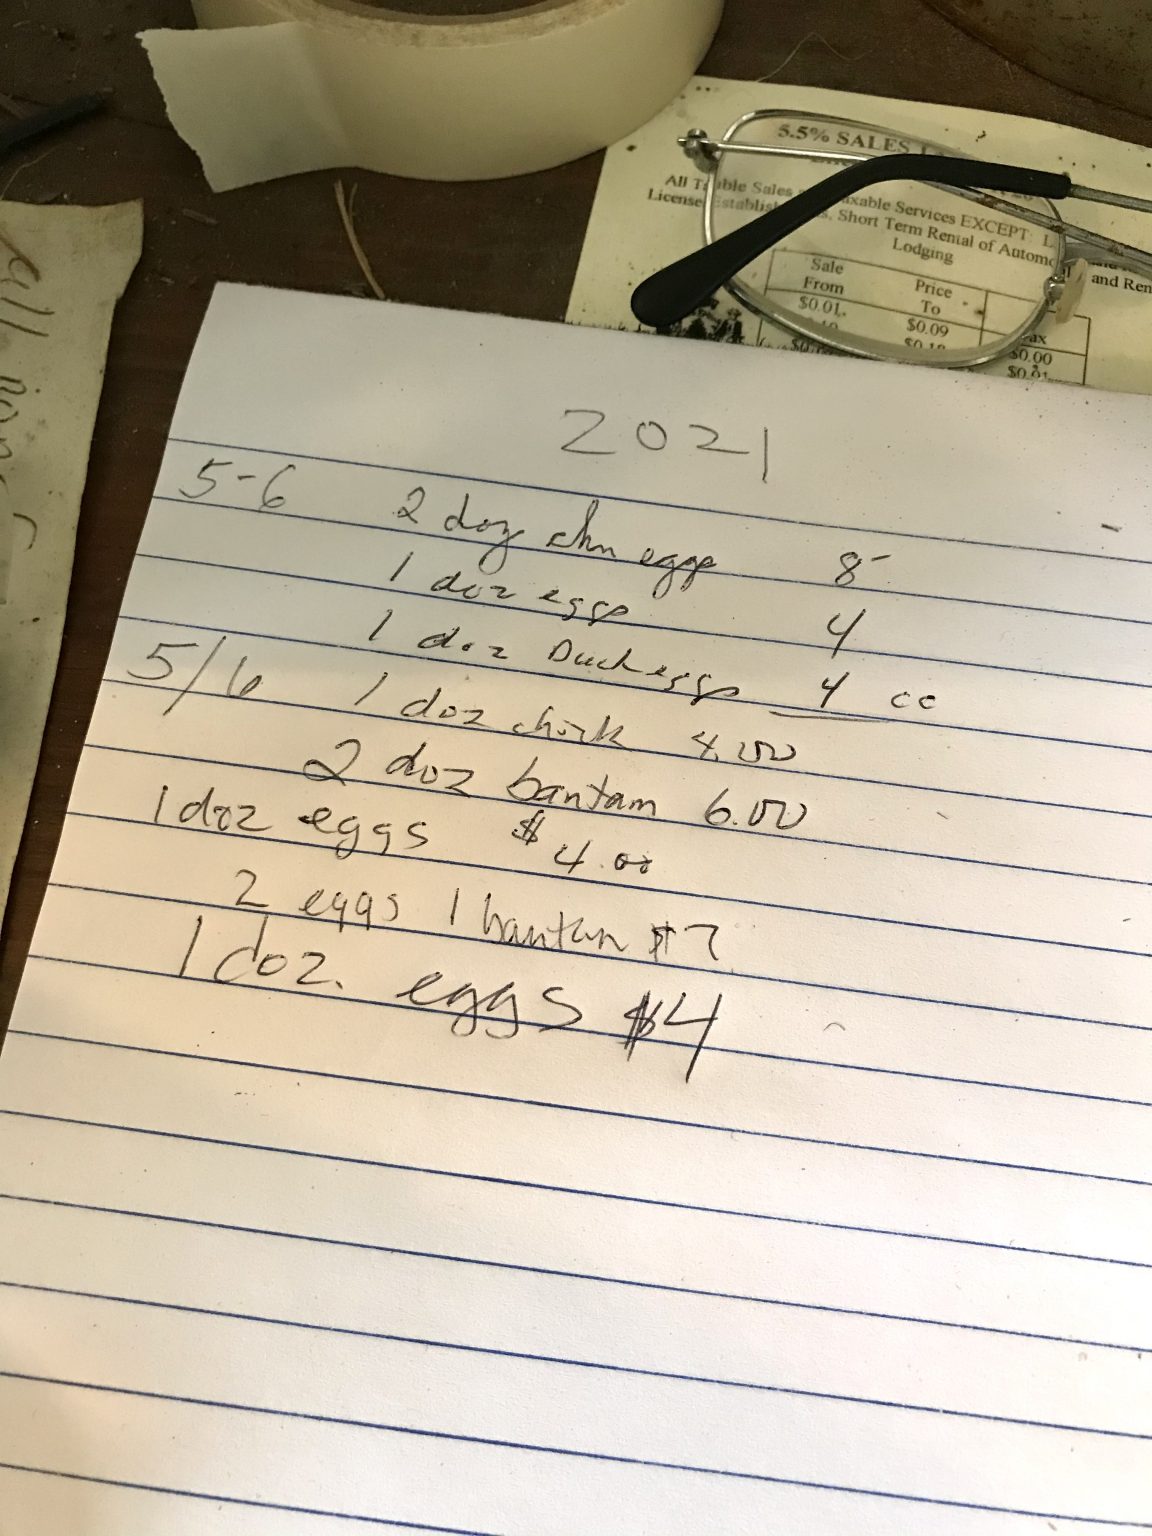 5.5% SALES
All Taxable Sales Taxable Services EXCEPT:
License Establish Short Term Rental of Autom and Ren
Lodging
Sale Price
From To ax
$0.01 $0.09 $0.00
$0.10 $0.18 $0.01
2021
5-6 2 doz chn eggs 8-
1 doz eggs 4
1 doz Duck eggs 4 cc
5/6 1 doz chick 4.00
2 doz bantam 6.00
1 doz eggs $4.00
2 eggs 1 bantam $7
1 doz. eggs $4